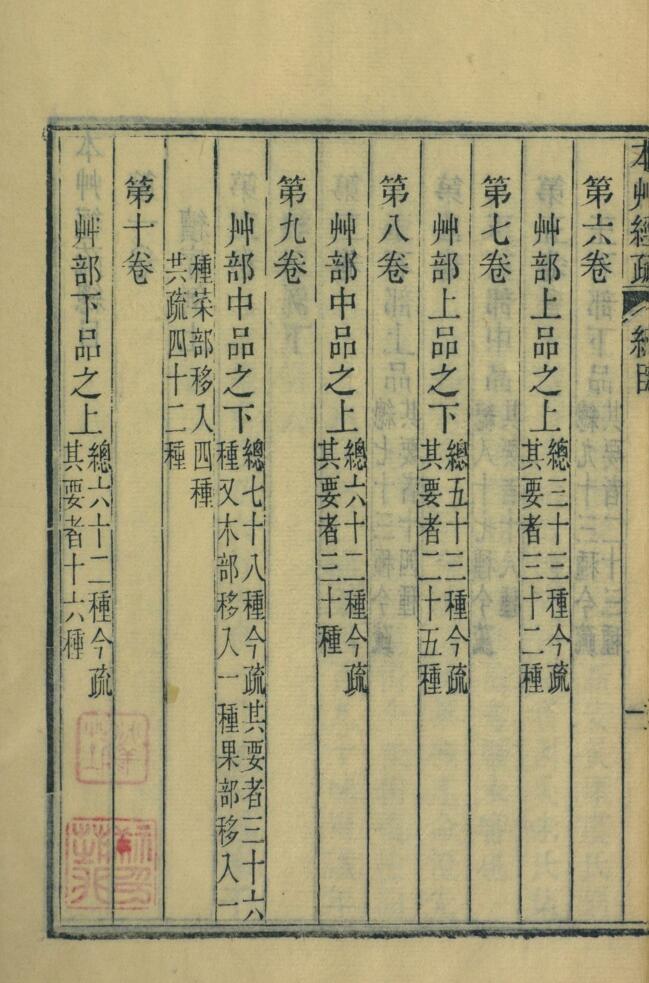 本艸經疏
第六卷
艸部上品之上
總三十三種今疏
其要者三十二種
第七卷
艸部上品之下
總五十三種今疏
其要者二十五種
第八卷
艸部中品之上
總六十二種今疏
其要者三十種
第九卷
艸部中品之下
總七十八種今疏其要者三十六
種又木部移入一種果部移入一
種菜部移入四種
共疏四十二種
第十卷
艸部下品之上
總六十二種今疏
其要者十六種